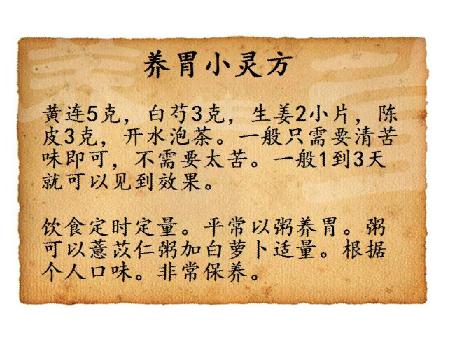 养胃小灵方
黄连5克，白芍3克，生姜2小片，陈
皮3克，开水泡茶。一般只需要清苦
味即可，不需要太苦。一般1到3天
就可以见到效果。
饮食定时定量。平常以粥养胃。粥
可以薏苡仁粥加白萝卜适量。根据
个人口味。非常保养。